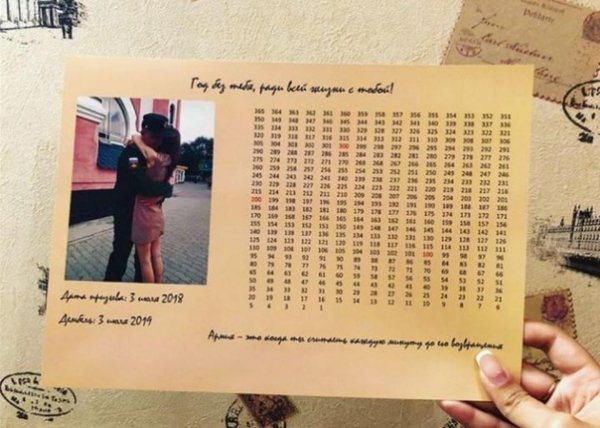 Postkarte
Год без тебя, ради всей жизни с тобой!
365 364 363 362 361 360 359 358 357 356 355 354 353 352 351
350 349 348 347 346 345 344 343 342 341 340 339 338 337 336
335 334 333 332 331 330 329 328 327 326 325 324 323 322 321
320 319 318 317 316 315 314 313 312 311 310 309 308 307 306
305 304 303 302 301 300 299 298 297 296 295 294 293 292 291
290 289 288 287 286 285 284 283 282 281 280 279 278 277 276
275 274 273 272 271 270 269 268 267 266 265 264 263 262 261
260 259 258 257 256 255 254 253 252 251 250 249 248 247 246
245 244 243 242 241 240 239 238 237 236 235 234 233 232 231
230 229 228 227 226 225 224 223 222 221 220 219 218 217 216
215 214 213 212 211 210 209 208 207 206 205 204 203 202 201
200 199 198 197 196 195 194 193 192 191 190 189 188 187 186
185 184 183 182 181 180 179 178 177 176 175 174 173 172 171
170 169 168 167 166 165 164 163 162 161 160 159 158 157 156
155 154 153 152 151 150 149 148 147 146 145 144 143 142 141
140 139 138 137 136 135 134 133 132 131 130 129 128 127 126
125 124 123 122 121 120 119 118 117 116 115 114 113 112 111
110 109 108 107 106 105 104 103 102 101 100 99 98 97 96
95 94 93 92 91 90 89 88 87 86 85 84 83 82 81
80 79 78 77 76 75 74 73 72 71 70 69 68 67 66
65 64 63 62 61 60 59 58 57 56 55 54 53 52 51
50 49 48 47 46 45 44 43 42 41 40 39 38 37 36
35 34 33 32 31 30 29 28 27 26 25 24 23 22 21
20 19 18 17 16 15 14 13 12 11 10 9 8 7 6
5 4 3 2 1
Дата призыва: 3 июля 2018
Дембель: 3 июля 2019
Армия – это когда ты считаешь каждую минуту до его возвращения